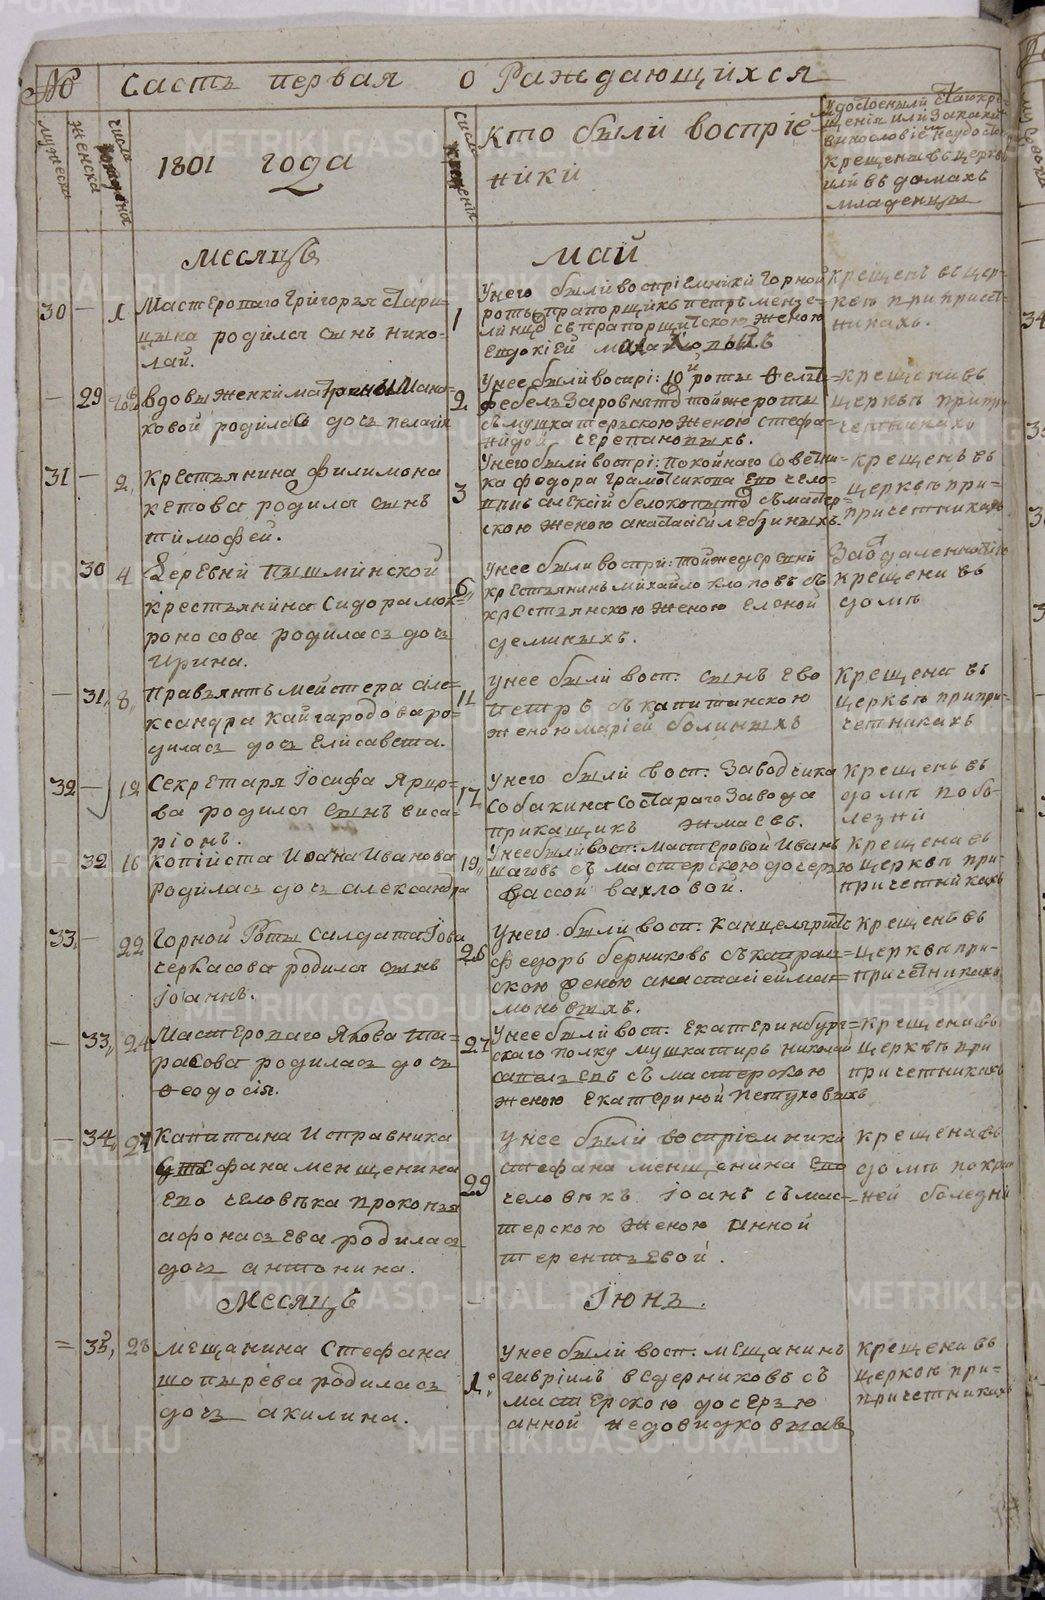 № Часть первая о Раждающихся
мужеска
женска
числа рождения
1801 года
число крещения
кто были восприе-
ники
удостоены ли
крещены въ церкве
или въ домахъ
младенцы
месяцъ май
30 — 1 Мастероваго Григорья Стари-
цына родился сынъ Нико-
лай.
1 Унего были восприемники Горной
роты прапорщикъ петръ
съ прапорщитскою женою
Евдокией
крещенъ вцер-
кве при причет-
никахъ.
— 29 вдовы женки матрены
ховой родилась дочь пелагия
2 Унее были воспри: 10й роты фелт-
фебель тойже роты
съ мушкатерскою женою стефа-
нидой черепановыхъ.
крещена въ
церкве при при-
четникахъ
31 — 2 крестьянина филимона
кетова родился сынъ
тимофей.
3 Унего были воспри: покойнаго Советни-
ка федора его чело-
векъ алексей белокопытовъ съ мастер-
скою женою анастасией
крещенъ въ
церкве при-
причетникахъ
30 4 Деревни пышминской
крестьянина Сидора мок-
роносова родилась дочь
Ирина.
6 унее были воспри: тойже деревни
крестьянинъ михайло клоповъ съ
крестьянскою женою еленой
деминыхъ.
За отдаленностию
крещена въ
доме
— 31 8 правьянтъ мейстера але-
ксандра кайгародова ро-
дилась дочь Елисавета.
11 унее были восп: сынъ ево
петръ съ капитанскою
женою марией болиныхъ
крещена въ
церкве при при-
четникахъ
32 — 12 Секретаря Иосифа Ярцо-
ва родился сынъ виса-
рионъ.
17 Унего были восп: Заводчика
Собакина Со Стараго Завода
прикащикъ
крещенъ въ
доме по бо-
лезни
32 16 Копииста Ивана Иванова
родилась дочь александра
19 Унее были восп: мастеровой Иванъ
шаговъ съ мастерскою дочерью
вассой вахловой.
крещена въ
церкве при-
причетникахъ
33 — 22 Горной Роты Салдата Иова
черкасова родился сынъ
Иоаннъ.
26 Унего были восп: канцеляристъ
федоръ берниковъ съ
скою женою анастасией
крещенъ въ
церкве при-
причетникахъ
— 33 24 Мастероваго Якова та-
расова родилась дочь
Феодосия.
27 Унее были восп: екатеринбург-
скаго полку мушкатиръ николай
съ мастерскою
женою екатериной петуховыхъ
крещена въ
церкве при
причетникахъ
— 34 24 Капитана Исправника
Стефана менщенина
ево человека прокопья
афонасьева родилась
дочь антонина.
29 унее были восприемники
стефана менщенина ево
человекъ иоанъ съ мас-
терскою женою анной
терентьевой.
крещена въ
доме по край-
ней болезни
Месяцъ Июнь.
35 28 мещанина Стефана
шапырева родилась
дочь акилина.
1е унее были восп: мещанинъ
гавриилъ ведерниковъ съ
мастерскою дочерью
анной недовидковыхъ
крещена въ
церкве при-
причетникахъ
METRIKI.GASO-URAL.RU